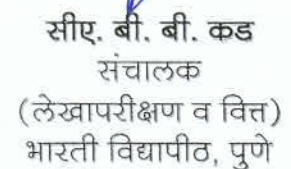 सीए. बी. बी. कड
संचालक
(लेखापरीक्षण व वित्त)
भारती विद्यापीठ, पुणे